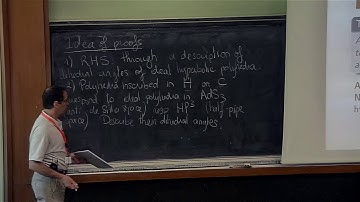 Idea of proofs
1) RHS through a description of
dihedral angles of ideal hyperbolic polyhedra.
2) Polyhedra inscribed in H or C
correspond to ideal polyhedra in AdS3
de Sitter space) and HP³ (half-pipe
space) Describe their dihedral angles.